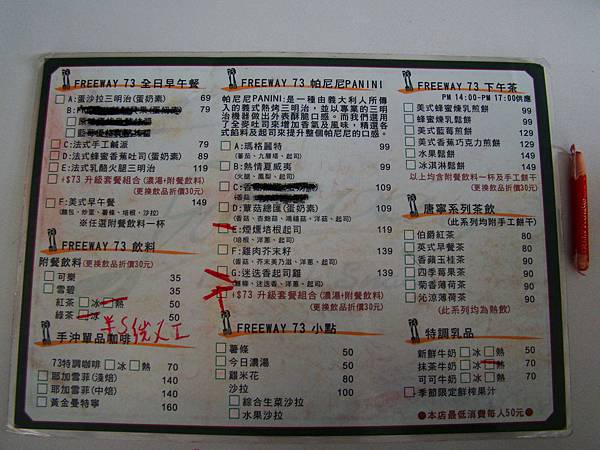 FREEWAY 73 全日早午餐
A:蛋沙拉三明治(蛋奶素) 69
79
C:法式手工鹹派 79
D:法式蜂蜜香蕉吐司(蛋奶素) 89
E:法式乳酪火腿三明治 119
+$73 升級套餐組合(濃湯+附餐飲料)
(更換飲品折價30元)
F:美式早午餐 149
(麵包、炒蛋、薯條、培根、沙拉)
※任選附餐飲料一杯
FREEWAY 73 飲料
附餐飲料(更換飲品折價30元)
可樂 35
雪碧 35
紅茶 冰 熱 50
綠茶 冰 50
手沖單品咖啡
73特調咖啡 冰 熱 70
耶加雪菲(淺焙) 140
耶加雪菲(中焙) 140
黃金曼特寧 160
FREEWAY 73 帕尼尼PANINI
帕尼尼PANINI:是一種由義大利人所傳
入的義式熱烤三明治,並以專業的三明
治機器做出外表酥脆口感。而我們選用
了全麥吐司來增加香氣及風味,精選各
式餡料及起司來提升整個帕尼尼的口感。
A:瑪格麗特 99
(蕃茄、九層塔、起司)
B:熱情夏威夷 99
(火腿、鳳梨、起司)
D:蕈菇總匯(蛋奶素) 109
(香菇、杏鮑菇、鴻禧菇、洋菇、起司)
E:煙燻培根起司 119
(培根、洋蔥、起司)
F:雞肉芥末籽 139
(香菇、芥末美乃滋、洋蔥、起司)
G:迷迭香起司雞 139
(雞條、迷迭香、洋蔥、起司)
+$73 升級套餐組合(濃湯+附餐飲料)
(更換飲品折價30元)
FREEWAY 73 小點
薯條 50
今日濃湯 50
雞米花 50
沙拉 100
綜合生菜沙拉
水果沙拉
FREEWAY 73 下午茶
PM 14:00~PM 17:00供應
美式蜂蜜煉乳煎餅 99
美式蜂蜜煉乳鬆餅 99
美式藍莓煎餅 129
美式香蕉巧克力煎餅 129
水果鬆餅 149
冰淇淋鬆餅 149
以上均含附餐飲料一杯及手工餅干
(更換飲品折價30元)
唐寧系列茶飲
(此系列均附手工餅干)
伯爵紅茶 80
英式早餐茶 80
香蘋玉桂茶 80
四季莓果茶 80
菊香薄荷茶 80
沁涼薄荷茶 80
(此系列均為熱飲)
特調乳品
新鮮牛奶 冰 熱 50
抹茶牛奶 冰 熱 70
可可牛奶 冰 熱 70
季節限定鮮榨果汁
●本店最低消費每人50元●